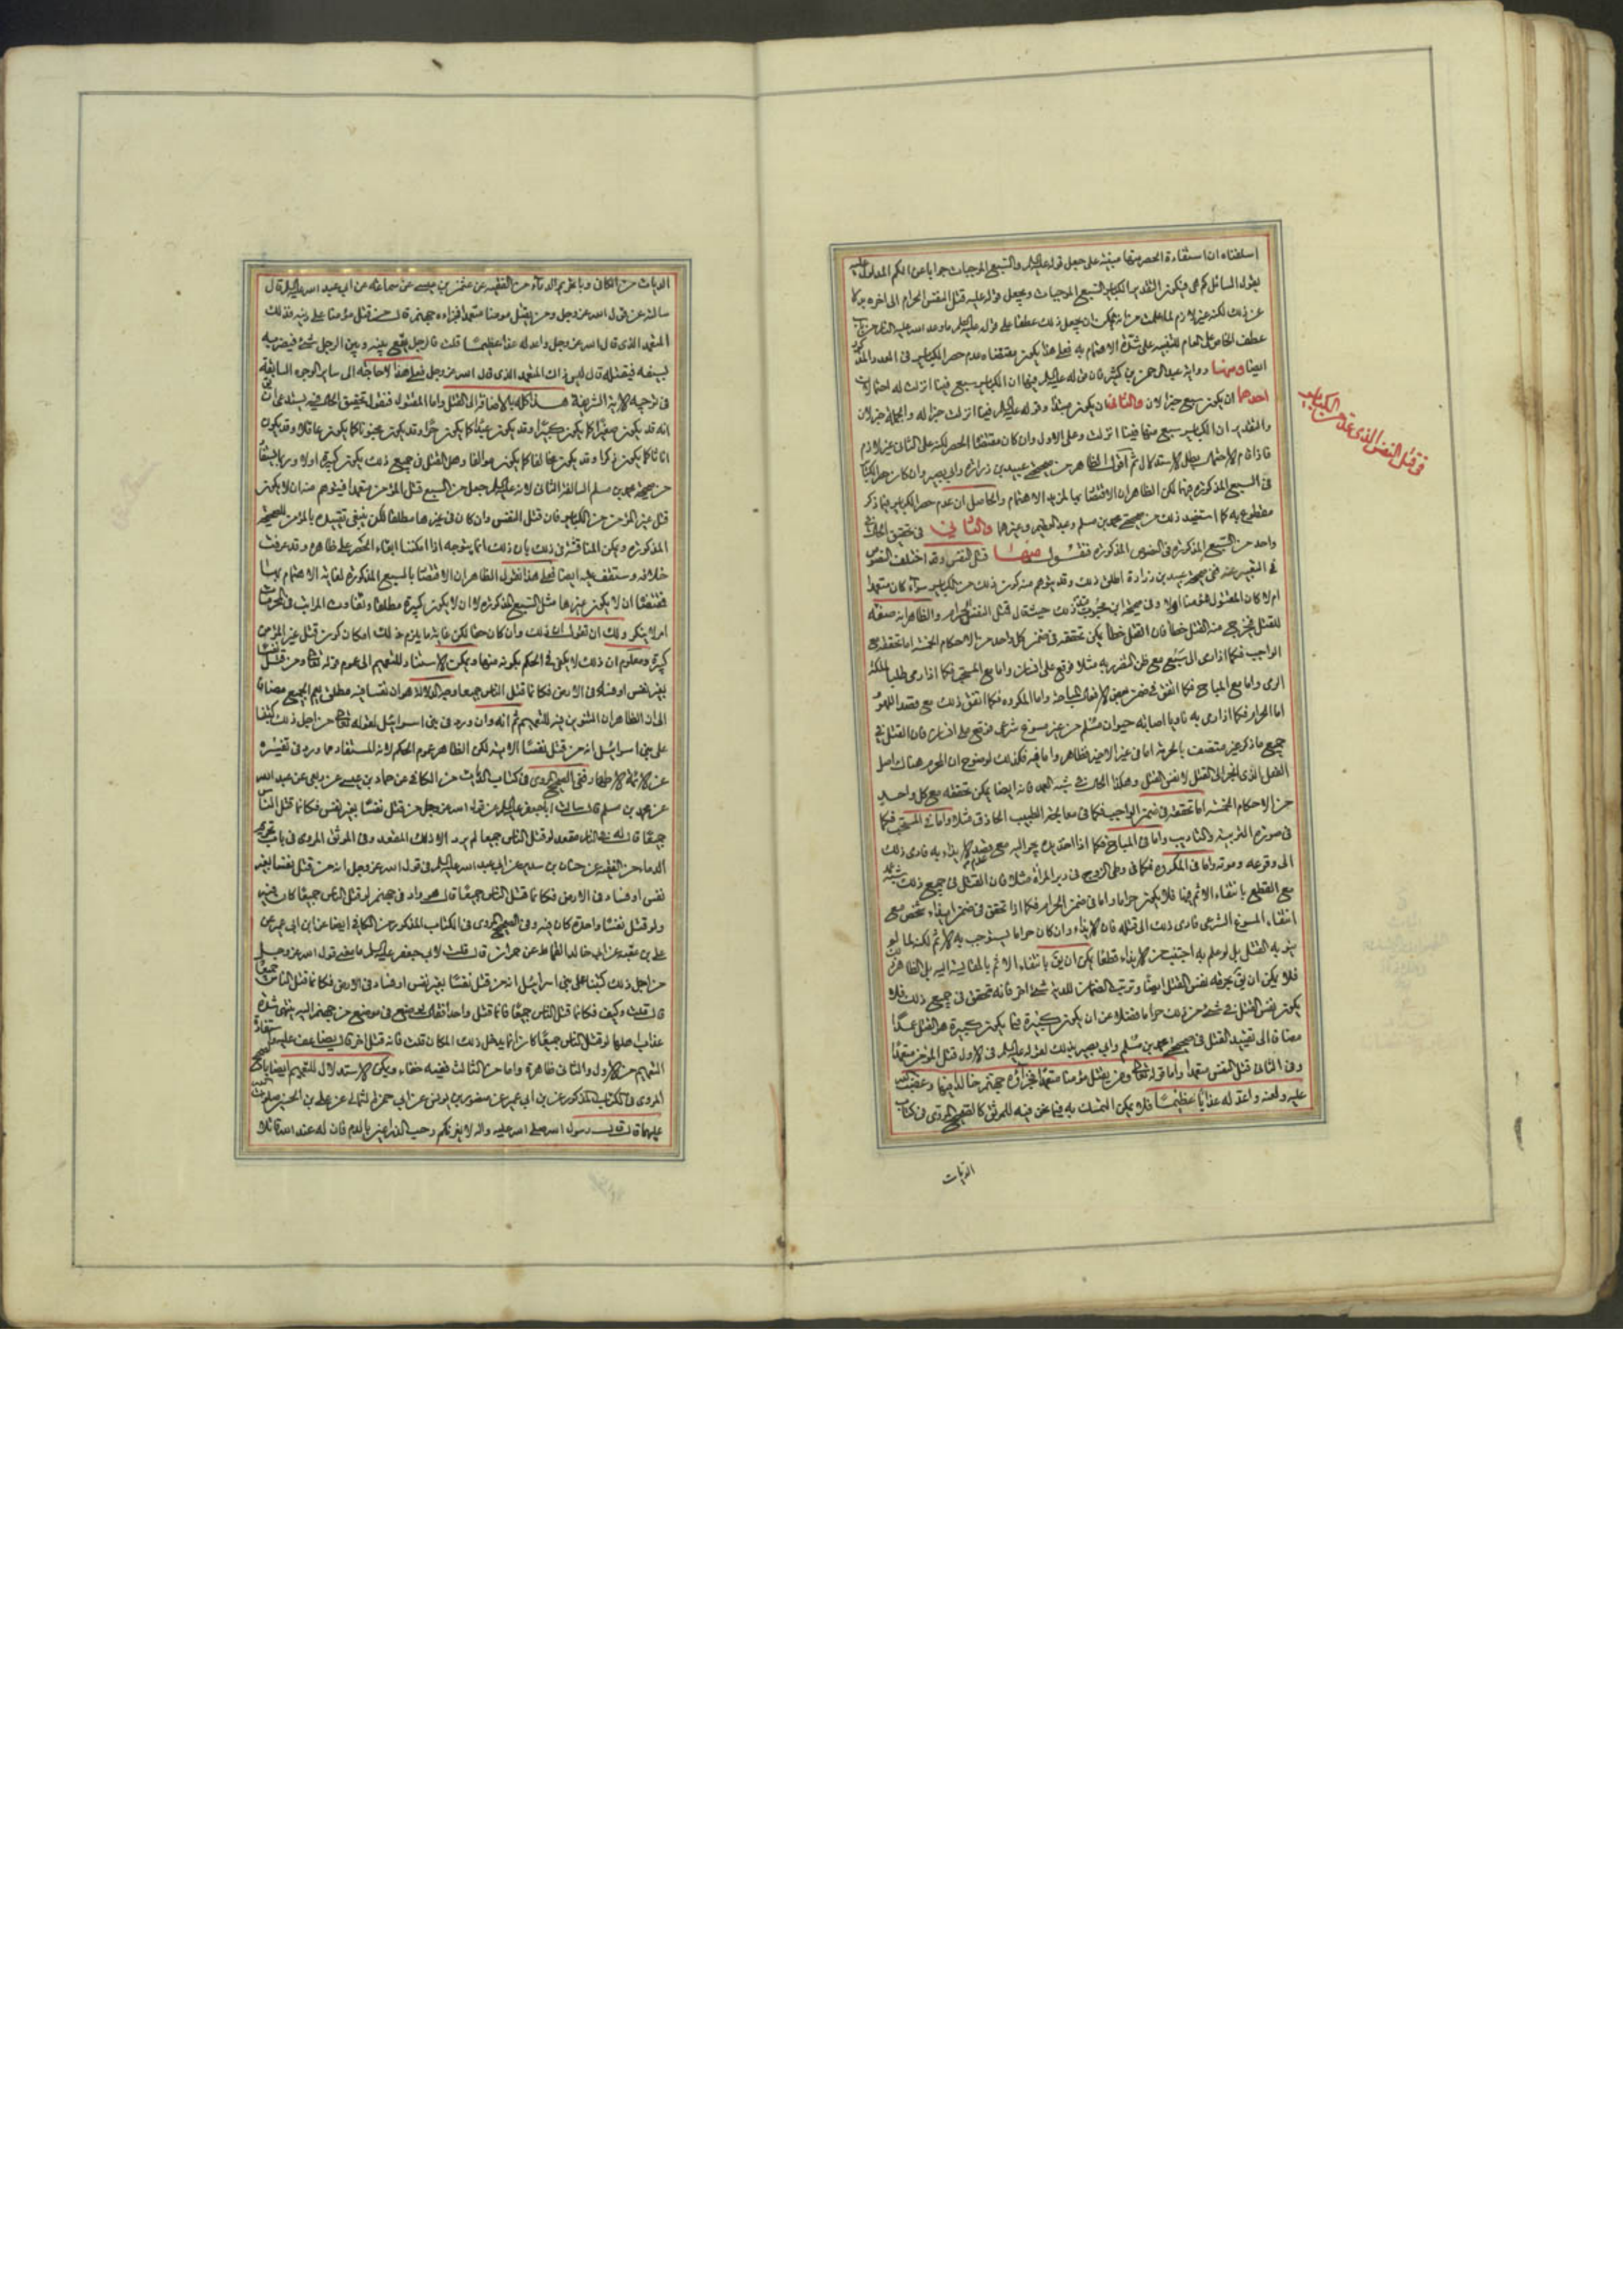 اسلفناه ان استفادة الحصر منها مبنية على جعل قوله عليه السلم والسبع الموجبات جوابا عن الكم المدلول عليه
بقول السائل كم هي فيكون التقدير الكباير السبع الموجبات ويجعل قوله عليه قتل النفس الحرام الى اخره بدلا
عن ذلك لكنه غير لازم لما علمت من انه يمكن ان يجعل ذلك عطفا على قوله عليه السلم ما وعد الله عليه النار من باب
عطف الخاص على العام للتنبيه على شدة الاهتمام به فعلى هذا يكون مقتضاه عدم حصر الكباير في العدد المذكور
ايضا ومنها رواية عبد الرحمن بن كثير فان قوله عليه السلم فيها ان الكباير سبع فينا انزلت له احتمالات
احدهما ان يكون سبع خبرا لان والثاني ان يكون مبتدأ وقوله عليه السلم فينا انزلت خبرا له والجملة خبر لان
والتقدير ان الكباير سبع منها فينا انزلت وعلى الاول وان كان مقتضيا الحصر لكنه على الثاني غير لازم
فاذا قام الاحتمال بطل الاستدلال ثم اقول الظاهر من صحيحة عبيد بن زرارة وابي بصير وان كان حصر الكباير
في السبع المذكورة فيها لكن الظاهر ان الاختصاص بها لمزيد الاهتمام والحاصل ان عدم حصر الكباير فيما ذكر
مقطوع به كما استفيد ذلك من صحيحة محمد بن مسلم وعبد العظيم وغيرهما والثاني في تحقيق الحال في
واحد من السبع المذكورة في النصوص المذكورة فنقول منها قتل النفس وقد اختلف النصوص
في التعبير عنه ففي صحيحة عبيد بن زرارة اطلق ذلك وقد يتوهم منه كون ذلك من الكباير سوآء كان متعمدا
ام لا كان المقتول مؤمنا ام لا وفي صحيحة ابن محبوب قيد ذلك حيث قال قتل النفس الحرام والظاهر انه صفة
للقتل فخرج منه القتل خطأ فان القتل خطأ يمكن تحققه في ضمن كل واحد من الاحكام الخمسة اما تحققه مع
الواجب فكما اذا رمى الى سبع مع ظن الضرر به مثلا فوقع على انسان واما مع المستحب فكما اذا رمى طلبا لملكة
الرمي واما مع المباح فكما اتفق في ضمن بعض الافعال المباحة واما المكروه فكما اتفق ذلك مع قصد اللهو
اما الحرام فكما اذا رمى به ناويا اصابة حيوان مسلم من غير مسوغ شرعي فوقع على انسان فان القتل في
جميع ما ذكر غير متصف بالحرمة اما في غير الاخير فظاهر واما فيه فكذلك لوضوح ان المحرم هناك اصل
الفعل الذي انجر الى القتل لا نفس القتل وهكذا الحال في شبه العمد فانه ايضا يمكن تحققه مع كل واحد
من الاحكام الخمسة اما تحققه في ضمن الواجب فكما في معالجة الطبيب الحاذق مثلا واما في المستحب فكما
في صورة التربية والتاديب واما في المباح فكما اذا
الى وقوعه وموته واما في المكروه فكما في وطى الزوج في دبر المرأة مثلا فان القتل في جميع ذلك شبيه عمد
مع القطع بانتفاء الاثم فيها فلا يكون حراما واما في ضمن الحرام فكما اذا تحقق في ضمن ايذاء شخص مع
انتفاء المسوغ الشرعي فادى ذلك الى قتله فان الايذاء وان كان حراما يستوجب به الاثم لكنه لما لو
ينو به القتل بل لو علم به اجتنب من الايذاء قطعا يمكن ان يق بانتفاء الاثم بالنسبة اليه بل الظاهر ذلك
فلا يمكن ان يق بحرمة نفس القتل ايضا وترتب الضمان للدية شئ اخر فانه متحقق في جميع ذلك فلا
يكون نفس القتل في شئ من ذلك حراما فضلا عن ان يكون كبيرة فيما يكون كبيرة هو القتل عمدا
مضافا الى تقييد القتل في صحيحة محمد بن مسلم وابي بصير بذلك لقوله عليه السلم في الاول قتل المؤمن متعمدا
وفي الثاني قتل النفس متعمدا واما قوله تعالى ومن يقتل مؤمنا متعمدا فجزاؤه جهنم خالدا فيها وغضب الله
عليه ولعنه واعد له عذابا عظيما فلا يمكن التمسك به فيما نحن فيه للموثق كالصحيح المروي في كتاب
الديات
في قتل النفس الذي عد من الكباير
الديات من الكافي وباب تحريم الدمآء من الفقيه عن عثمن بن عيسى عن سماعة عن ابي عبد الله عليه السلم قال
سالته عن قول الله عز وجل ومن يقتل مومنا متعمدا فجزاءه جهنم قال من قتل مؤمنا على دينه فذلك
المتعمد الذي قال الله عز وجل واعد له عذابا عظيما قلت فالرجل يقع بينه وبين الرجل شئ فيضربه
بسيفه فيقتله قال ليس ذلك المتعمد الذي قال الله عز وجل فعلى هذا لا حاجة الى ساير الوجوه السابقة
في توجيه الاية الشريفة هذا كله بالاضافة الى القتل واما المقتول فنقول تحقيق الحال فيه يستدعي ان يق
انه قد يكون صغيرا كما يكون كبيرا وقد يكون عبدا كما يكون حرا وقد يكون مجنونا كما يكون عاقلا وقد يكون
اناثا كما يكون ذكرا وقد يكون مخالفا كما يكون موالفا وهل القتل في جميع ذلك يكون كبيرة اولا وربما يستفاد
من صحيحة محمد بن مسلم السالفة الثاني لانه عليه السلم جعل من السبع قتل المؤمن متعمدا فيتوهم منه ان لا يكون
قتل غير المؤمن من الكباير فان قتل النفس وان كان في غيرها مطلقا لكن ينبغي تقييده بالمؤمن للصحيحة
المذكورة ويمكن المناقشة في ذلك بان ذلك انما يتوجه اذا امكننا ابقاء الحصر على ظاهره وقد عرفت
خلافه وستقف عليه ايضا فعلى هذا نقول الظاهر ان الاختصاص بالسبع المذكورة لغاية الاهتمام بها
فمقتضا ان لا يكون غيرها مثل السبع المذكورة لا ان لا يكون كبيرة مطلقا وتفاوت المراتب في المحرمات
امر لا ينكر ولك ان تقول ان ذلك وان كان حقا لكن غاية ما يلزم من ذلك امكان كون قتل غير المؤمن
كبيرة ومعلوم ان ذلك لا يكفي في الحكم بكونه منها ويمكن الاستناد للتعميم الى عموم قوله تعالى ومن قتل نفسا
بغير نفس او فساد في الارض فكانما قتل الناس جميعا وجه الدلالة هو ان نفسا فيه مطلق يعم الجميع مضافا
الى ان الظاهر ان التنوين فيه للتعميم ثم انه وان ورد في بني اسرائيل لقوله تعالى من اجل ذلك كتبنا
على بني اسرائيل انه من قتل نفسا الاية لكن الظاهر عموم الحكم لانه المستفاد مما ورد في تفسيره
عن الائمة الاطهار ففي الصحيح المروي في كتاب الديات من الكافي عن حماد بن عيسى عن ربعي عن عبد الله
عن محمد بن مسلم قال سالت ابا جعفر عليه السلم عن قول الله عز وجل من قتل نفسا بغير نفس فكانما قتل الناس
جميعا قال له في النار مقعد لو قتل الناس جميعا لم يرد الا ذلك المقعد وفي الموثق المروي في باب تحريم
الدما من الفقيه عن حنان بن سدير عن ابي عبد الله عليه السلم في قول الله عز وجل انه من قتل نفسا بغير
نفس او فساد في الارض فكانما قتل الناس جميعا قال هو واد في جهنم لو قتل الناس جميعا كان فيه
ولو قتل نفسا واحدة كان فيه وفي الصحيح المروي في الكتاب المذكور من الكافي ايضا عن ابن ابي عمير عن
علي بن عقبة عن ابي خالد القماط عن حمران قال قلت لابي جعفر عليه السلم ما معنى قول الله عز وجل
من اجل ذلك كتبنا على بني اسرائيل انه من قتل نفسا بغير نفس او فساد في الارض فكانما قتل الناس جميعا
قال قلت وكيف فكانما قتل الناس جميعا فانما قتل واحدا فقال يوضع في موضع من جهنم اليه ينتهي شدة
عذاب اهلها لو قتل الناس جميعا كان انما يدخل ذلك المكان قلت فانه قتل اخر قال يضاعف عليه واستفادة
التعميم من الاول والثاني ظاهرة واما من الثالث ففيه خفاء ويمكن الاستدلال للتعميم ايضا بالصحيح
المروي في الكتاب المذكور عن ابن ابي عمير عن منصور بن يونس عن ابي حمزة الثمالي عن علي بن الحسين صلوات الله
عليهما قال قال رسول الله صلى الله عليه واله لا يغرنكم رحب الذراعين بالدم فان له عند الله قاتلا